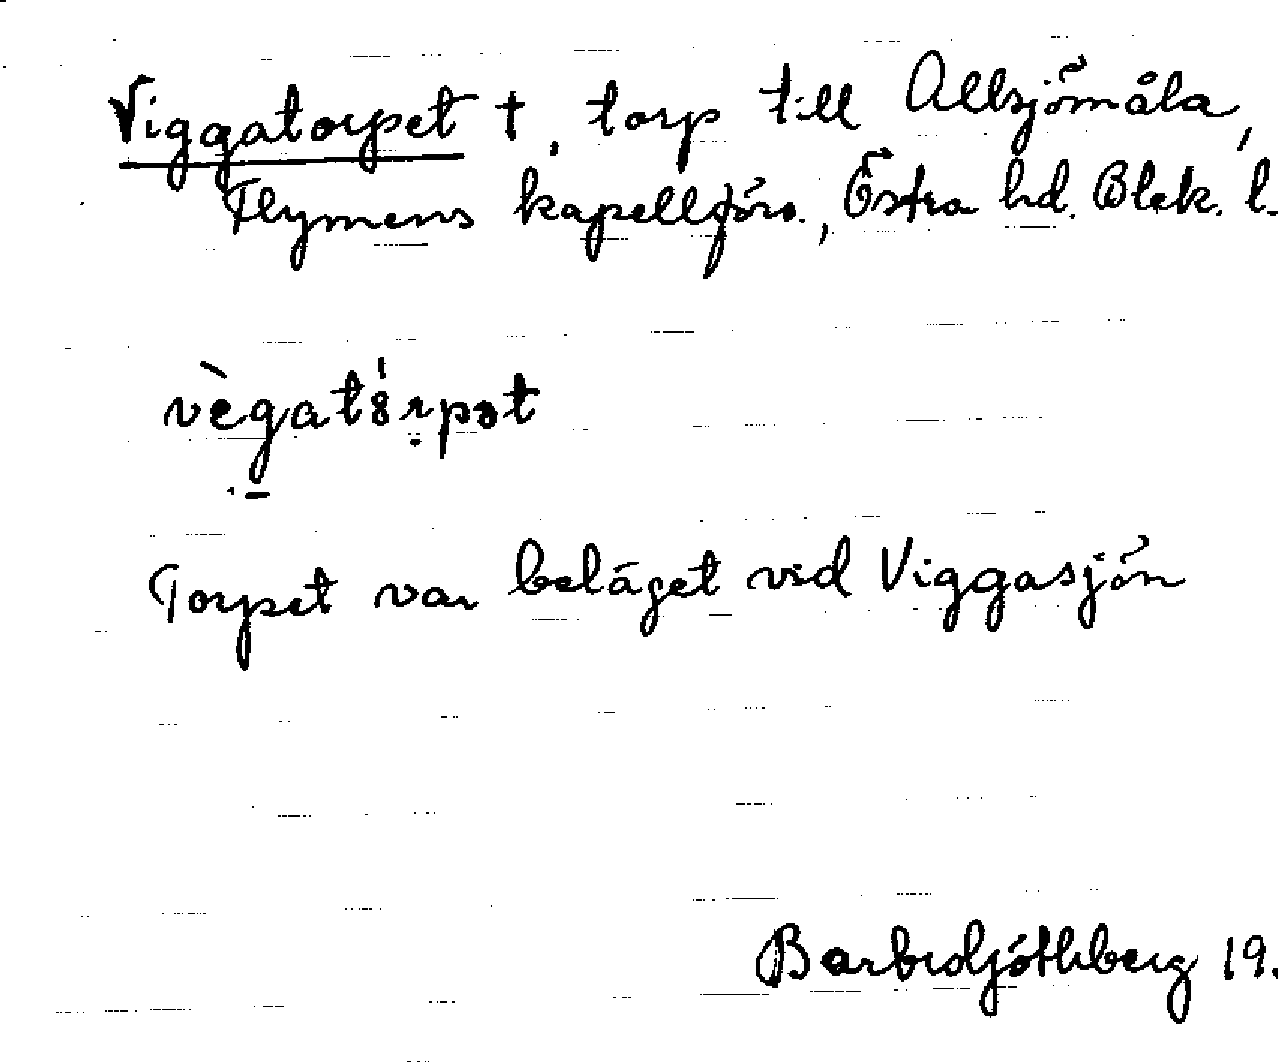 Viggatorpet †, torp till Allsjömåla,
Flymens kapellförs., Östra hd. Blek. l.
vègatórpət
Torpet var beläget vid Viggasjön
19.